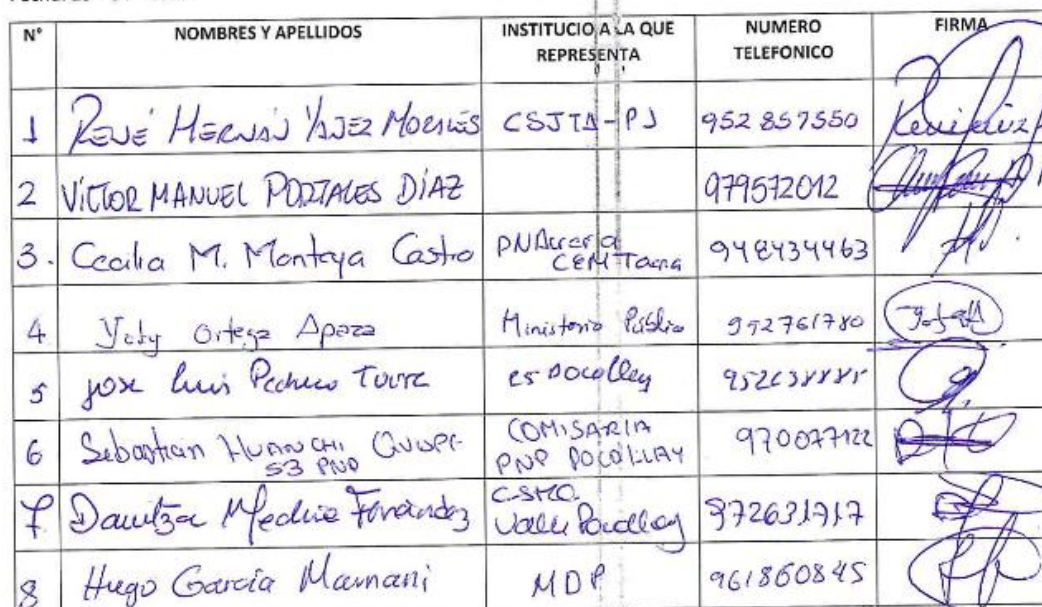 N° NOMBRES Y APELLIDOS INSTITUCIO A LA QUE REPRESENTA NUMERO TELEFONICO FIRMA
1 RENÉ HERNÁN YAJEZ MORALES CSJTA-PJ 952 857550
2 VÍCTOR MANUEL PORTALES DÍAZ 979572012
3. Cecilia M. Montoya Castro PNAurora CEM Tacna 948434463
4 Yedy Ortega Apaza Ministerio Público 952761780
5 José Luis Pacheco Torre Pocollay
6 Sebastian HUANCHI QUISPE S3 PNP COMISARIA PNP POCOLLAY 970077122
7 Danitza Medina Fernández CSMC Valle Pocollay 972631717
8 Hugo García Mamani MDP 961860845